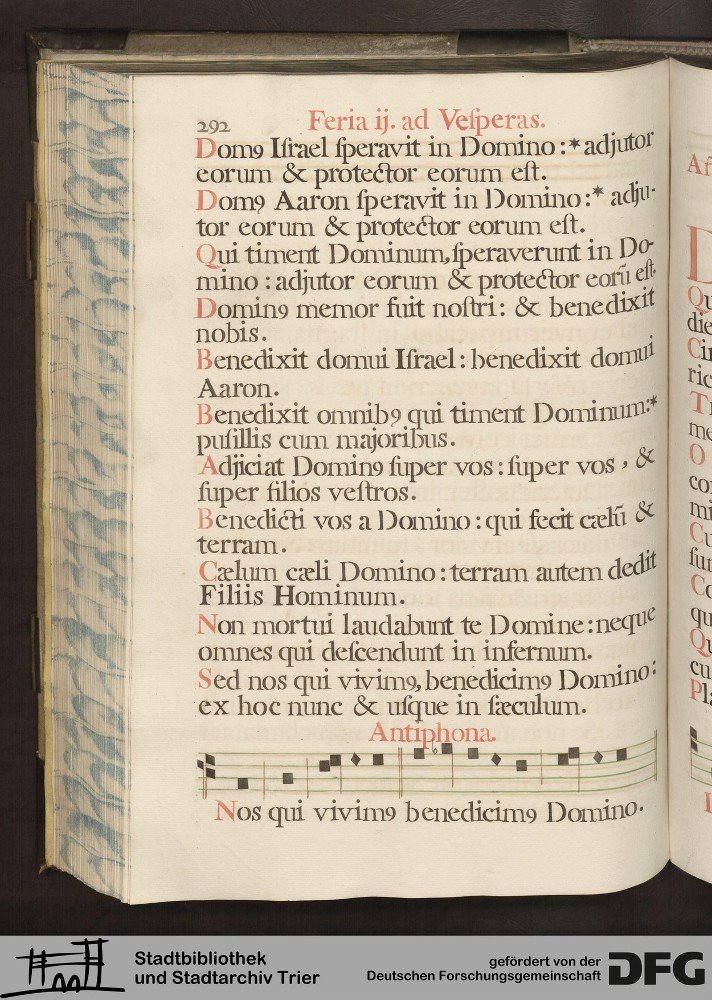 292 Feria ij. ad Veſperas.
Domꝯ Iſrael ſperavit in Domino:* adjutor
eorum & protector eorum eſt.
Domꝯ Aaron ſperavit in Domino:* adju-
tor eorum & protector eorum eſt.
Qui timent Dominum, ſperaverunt in Do-
mino: adjutor eorum & protector eorū eſt.
Dominꝯ memor fuit noſtri: & benedixit
nobis.
Benedixit domui Iſrael: benedixit domui
Aaron.
Benedixit omnibꝯ qui timent Dominum:*
puſillis cum majoribus.
Adjiciat Dominꝯ ſuper vos: ſuper vos, &
ſuper filios veſtros.
Benedicti vos a Domino: qui fecit cælū &
terram.
Cælum cæli Domino: terram autem dedit
Filiis Hominum.
Non mortui laudabunt te Domine: neque
omnes qui deſcendunt in infernum.
Sed nos qui vivimꝯ, benedicimꝯ Domino:
ex hoc nunc & uſque in ſæculum.
Antiphona.
Nos qui vivimꝯ benedicimꝯ Domino.
Af
Qu
die
Ci
ric
me
O
co
mi
Cu
ſu
Co
qu
Qu
cu
Pla
Stadtbibliothek
und Stadtarchiv Trier
gefördert von der
Deutschen Forschungsgemeinschaft
DFG